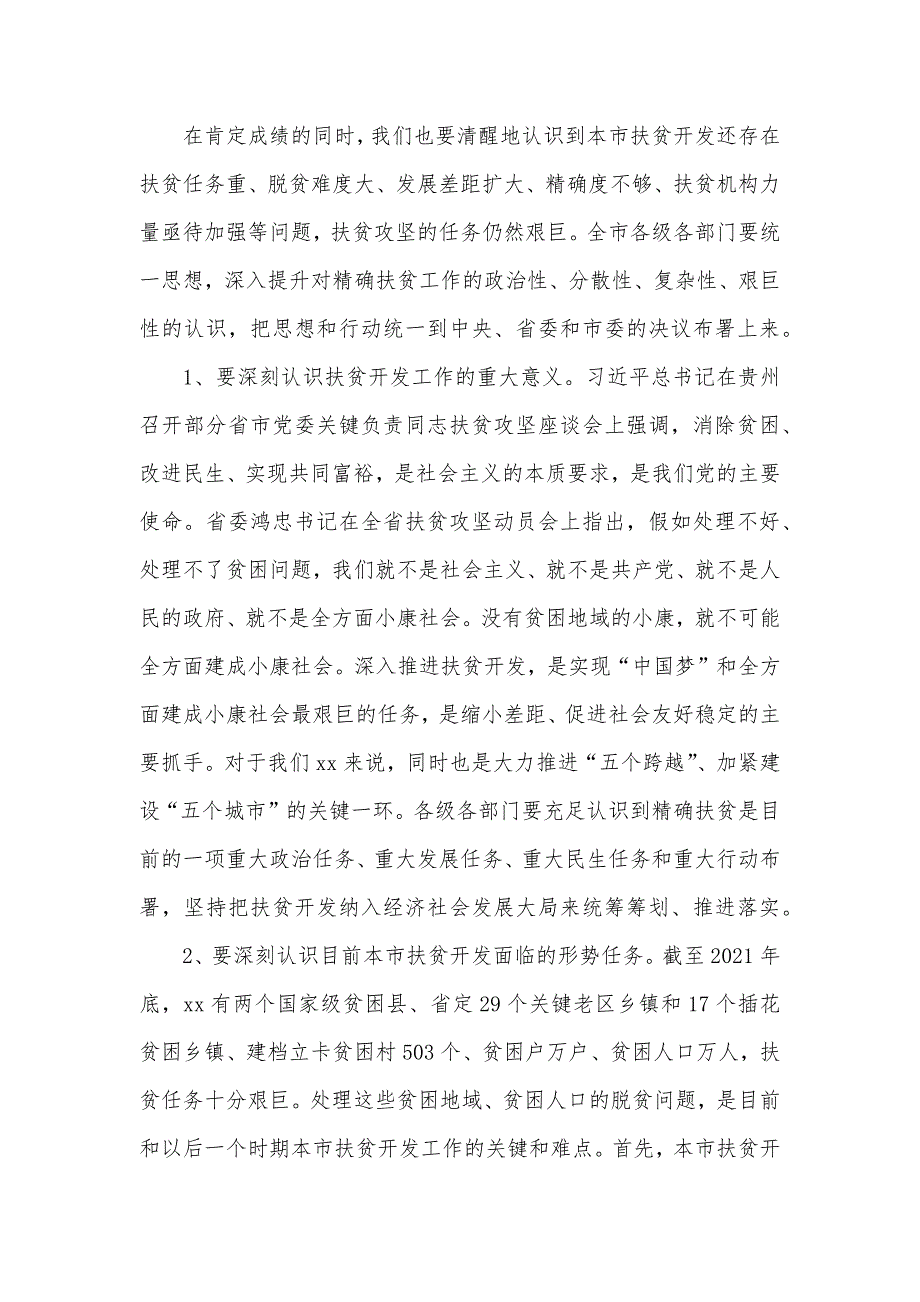 在肯定成绩的同时，我们也要清醒地认识到本市扶贫开发还存在
扶贫任务重、脱贫难度大、发展差距扩大、精确度不够、扶贫机构力
量亟待加强等问题，扶贫攻坚的任务仍然艰巨。全市各级各部门要统
一思想，深入提升对精确扶贫工作的政治性、分散性、复杂性、艰巨
性的认识，把思想和行动统一到中央、省委和市委的决议布署上来。
1、要深刻认识扶贫开发工作的重大意义。习近平总书记在贵州
召开部分省市党委关键负责同志扶贫攻坚座谈会上强调，消除贫困、
改进民生、实现共同富裕，是社会主义的本质要求，是我们党的主要
使命。省委鸿忠书记在全省扶贫攻坚动员会上指出，假如处理不好、
处理不了贫困问题，我们就不是社会主义、就不是共产党、就不是人
民的政府、就不是全方面小康社会。没有贫困地域的小康，就不可能
全方面建成小康社会。深入推进扶贫开发，是实现“中国梦”和全方
面建成小康社会最艰巨的任务，是缩小差距、促进社会友好稳定的主
要抓手。对于我们xx来说，同时也是大力推进“五个跨越”、加紧建
设“五个城市”的关键一环。各级各部门要充足认识到精确扶贫是目
前的一项重大政治任务、重大发展任务、重大民生任务和重大行动布
署，坚持把扶贫开发纳入经济社会发展大局来统筹筹划、推进落实。
2、要深刻认识目前本市扶贫开发面临的形势任务。截至2021年
底，xx有两个国家级贫困县、省定29个关键老区乡镇和17个插花
贫困乡镇、建档立卡贫困村503个、贫困户万户、贫困人口万人，扶
贫任务十分艰巨。处理这些贫困地域、贫困人口的脱贫问题，是目前
和以后一个时期本市扶贫开发工作的关键和难点。首先，本市扶贫开